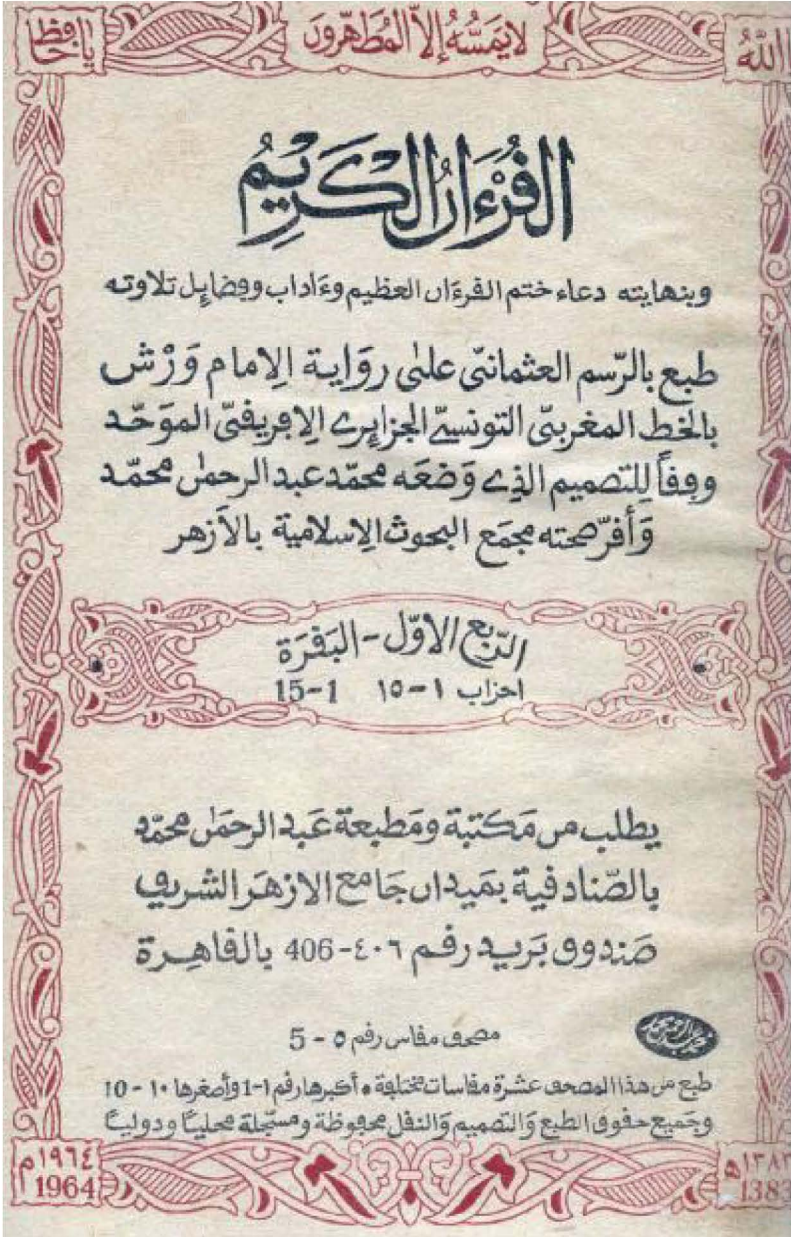 الله
لا يمسّه إلاّ المطهّرون
يا حافظ
القُرْءَانُ الكَرِيمُ
وبنهايته دعاء ختم القرءَان العظيم وءَاداب وفضايِل تلاوته
طبع بالرّسم العثمانىّ علىٰ روَاية الإمام وَرْش
بالخط المغربىّ التونسىّ الجزايِرى الإفريقىّ الموَحّد
وفقاً للتصميم الذِى وَضعَه محمّد عبد الرحمٰن محمّد
وَأقرّ صحته مجمَع البحوث الإسلامية بالأزهر
الرّبع الأوّل - البَقَرَة
احزاب ١ - ١٥ 1-15
يطلب من مَكتبة ومَطبعة عَبد الرحمٰن محمّد
بالصّنادقية بمَيدان جَامع الازهَر الشريف
صَندوق بَريد رقم ٤٠٦-406 بالقاهِرة
مصحف مقاس رقم ٥ - 5
طبع من هذا المصحف عشرة مقاسات مختلفة، أكبرها رقم ١-1 وأصغرها ١٠ - 10
وجَميع حقوق الطبع وَالتصميم وَالنقل محفوظة ومسَجّلة محليًا ودوليًا
١٣٨٣ھ
1383
١٩٦٤م
1964